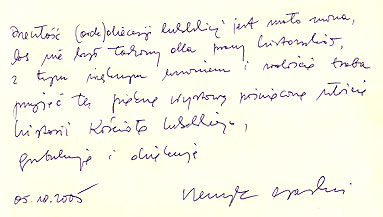 Przeszłość (archi)diecezji lubelskiej jest mało znana,
los nie był łaskawy dla pracy historyków,
z tym większym uznaniem i radością trzeba
przyjąć tę piękną wystawę poświęconą
historii Kościoła lubelskiego,
gratuluję i dziękuję
05.10.2005 Henryk